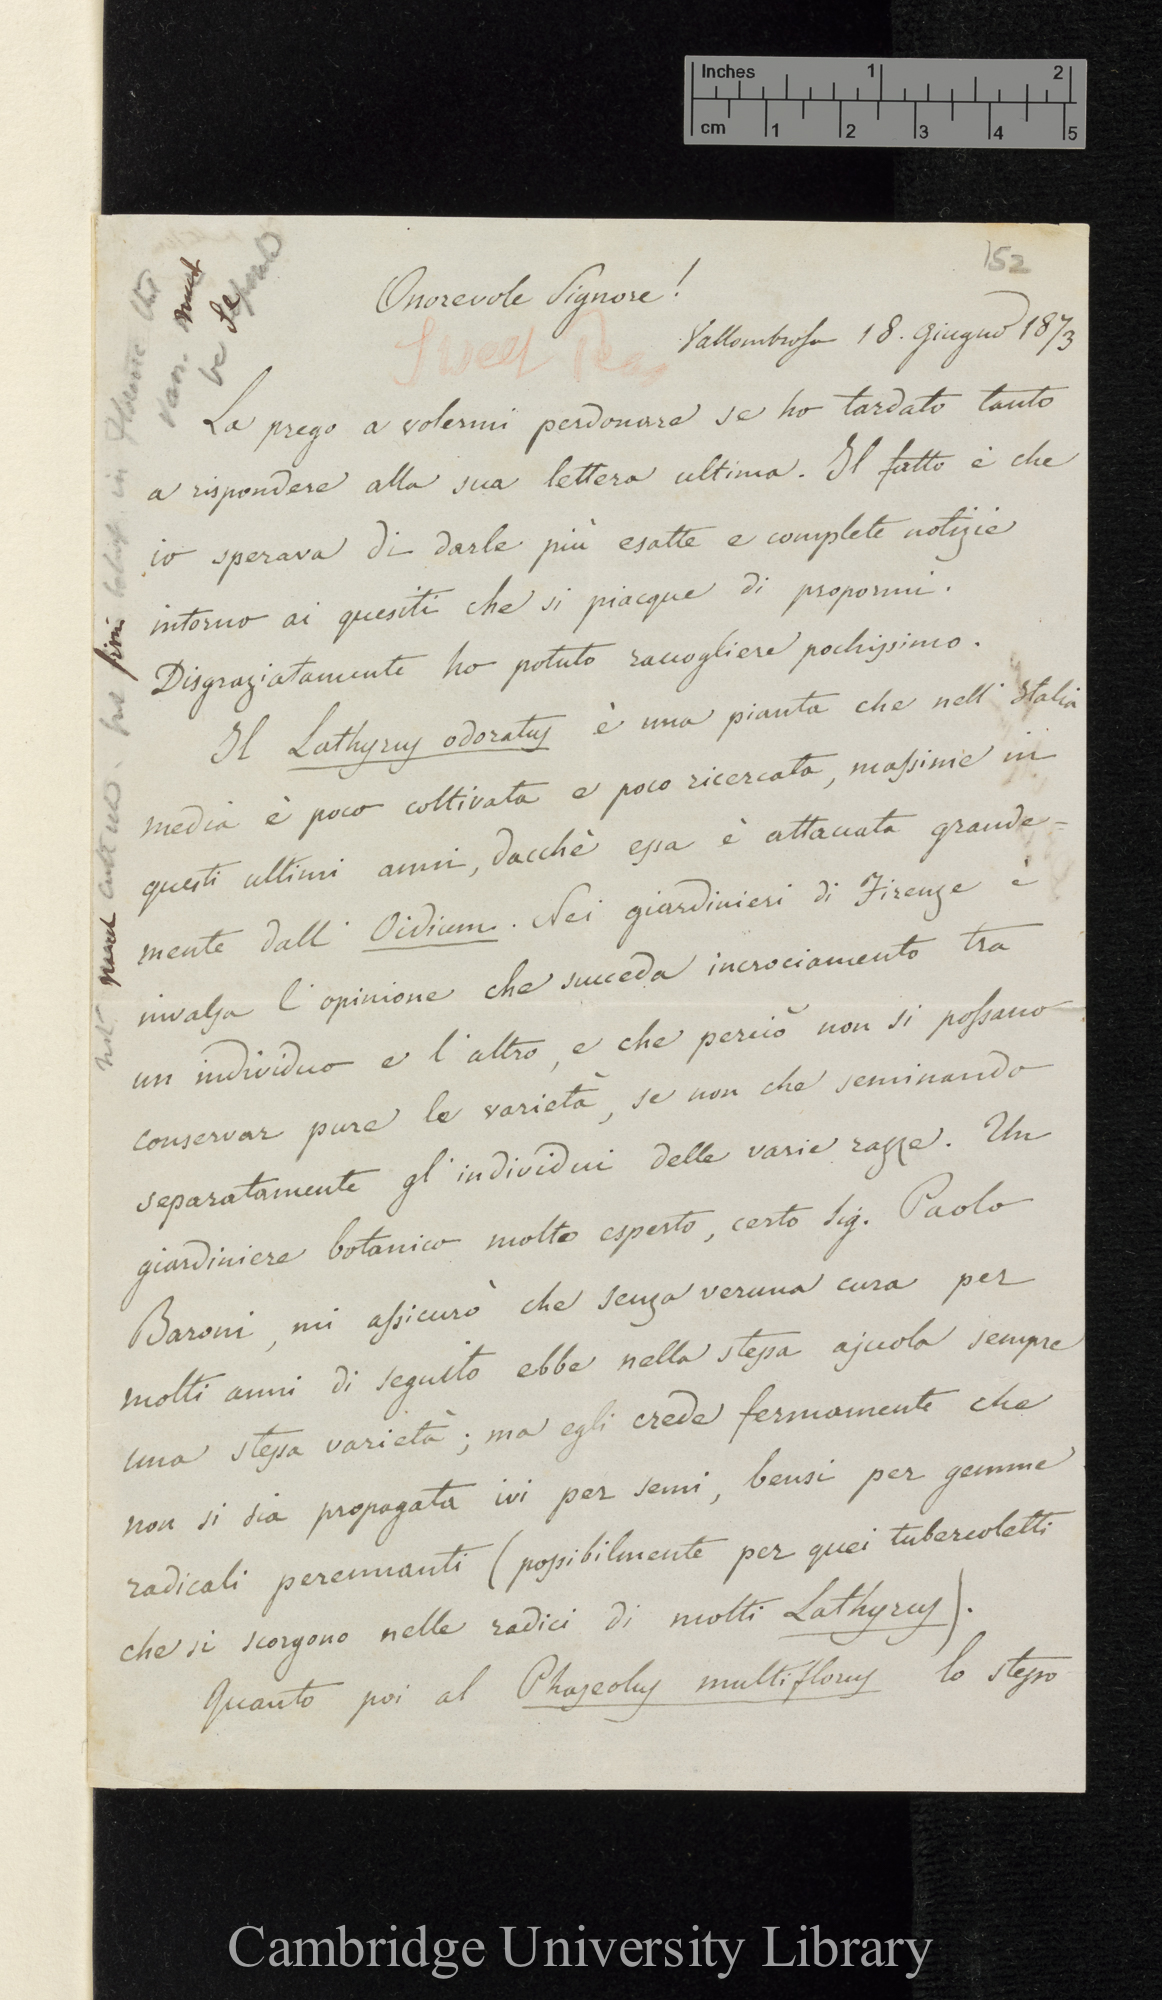 Inches 1 2
cm 1 2 3 4 5
152
Onorevole Signore!
Sweet Peas
Vallombrosa 18. Giugno 1873
La prego a volermi perdonare se ho tardato tanto
a rispondere alla sua lettera ultima. Il fatto è che
io sperava di darle più esatte e complete notizie
intorno ai quesiti che si piacque di propormi.
Disgraziatamente ho potuto raccogliere pochissimo.
Il Lathyrus odoratus è una pianta che nell' Italia
media è poco coltivata e poco ricercata, massime in
questi ultimi anni, dacchè essa è attaccata grande-
mente dall' Oidium. Nei giardinieri di Firenze è
invalsa l'opinione che succeda incrociamento tra
un individuo e l'altro, e che perciò non si possano
conservar pure le varietà, se non che seminando
separatamente gl'individui delle varie razze. Un
giardiniere botanico molto esperto, certo Sig. Paolo
Baroni, mi assicurò che senza veruna cura per
molti anni di seguito ebbe nella stessa ajuola sempre
una stessa varietà; ma egli crede fermamente che
non si sia propagata ivi per semi, bensì per gemme
radicali perennanti (possibilmente per quei tubercoletti
che si scorgono nelle radici di molti Lathyrus).
Quanto poi al Phaseolus multiflorus lo stesso
not much cultured. but firm belief in Florence that
vars. must
be separated
Cambridge University Library